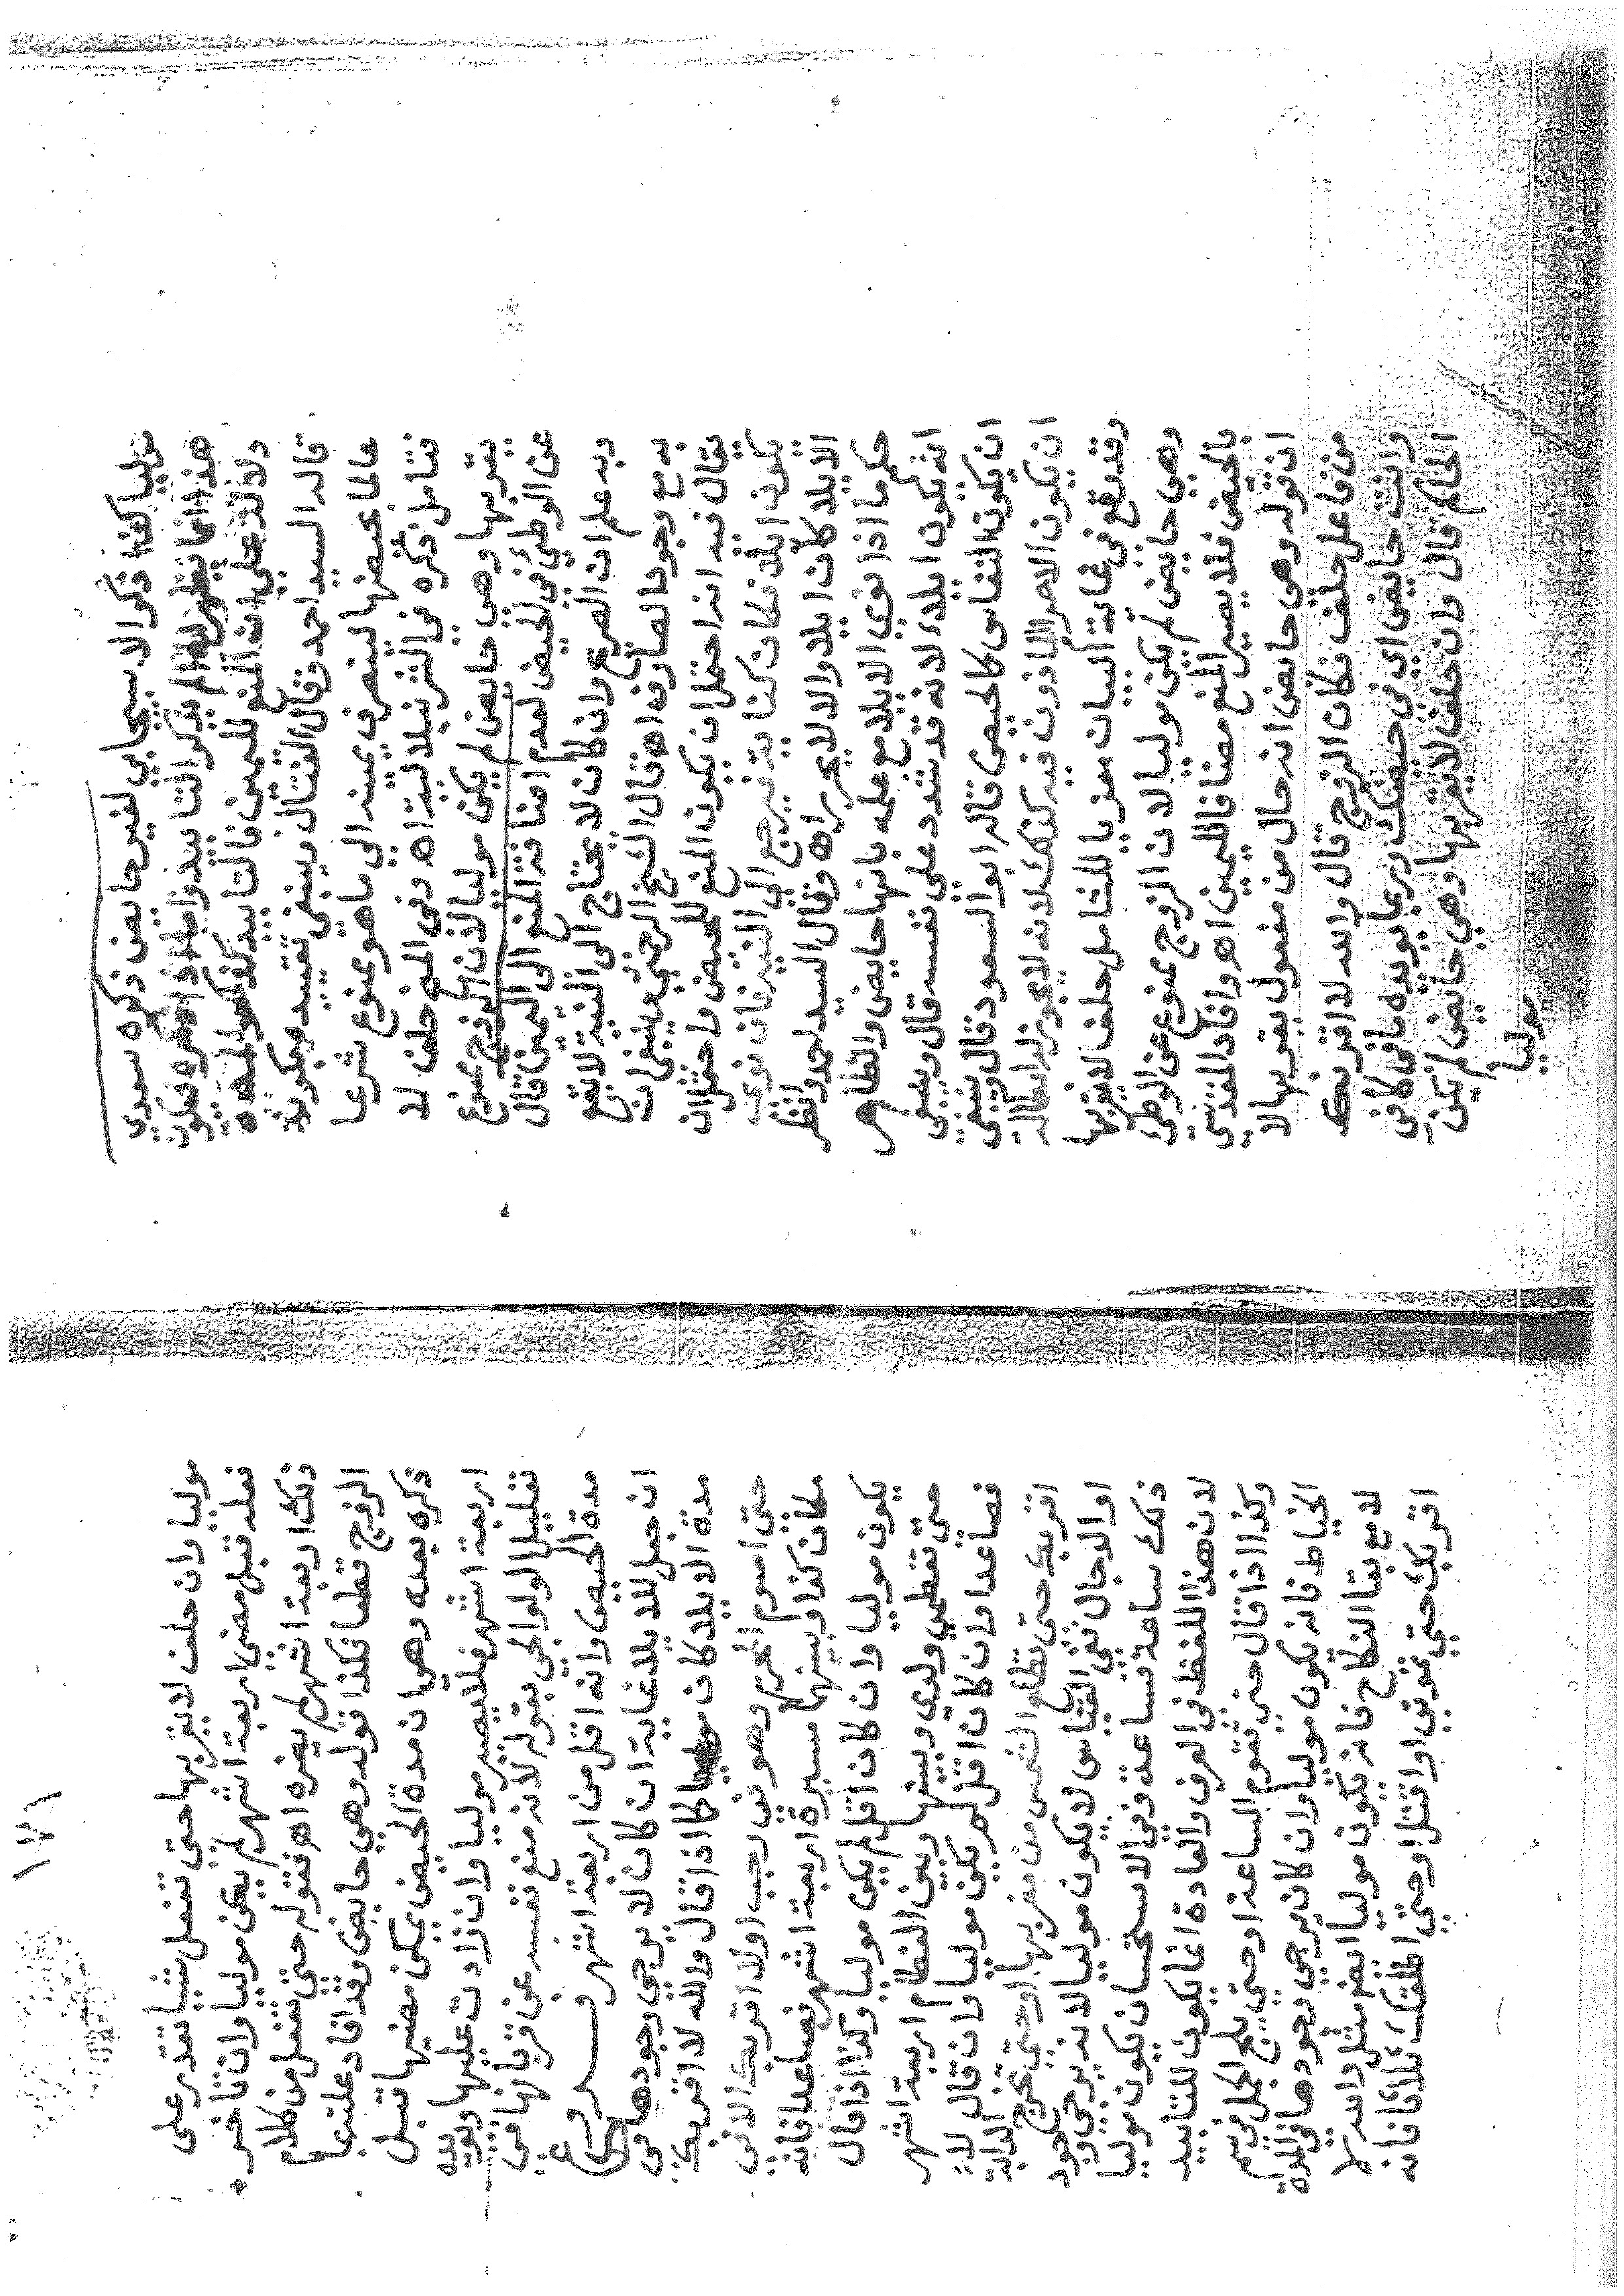 موليا كذا ذكر الاسبيجابي لغير حايض ذكره سعدي
هذا انما يظهر لو لم يذكر التابيد واما اذا ذكره فيكون
ولالة علي ان المنع لليمين فالتابيد
قاله السيد احمد وقال الفتال وينبغي تقييده بكونه
عالما بحيضها لينصرف يمينه الي ما هو ممنوع شرعا
فتامل ذكره في الشرنبلالية اه وفي المنح حلف لا
يقربها وهي حايض لم يكن موليا لان الزوج ممنوع
عن الوطئ في الحيض لعدم اضافة المنع الى اليمين قال
وبه علم ان الصريح وان كان لا يحتاج الى النية لا يقع
به مع وجود الصارف اه قال الشيخ الرحمتي وينبغي ان
يقال فيه انه احتمل ان يكون المنع للحيض واحتمل ان
يكون ايلاء فكان كناية فيرجع الي النية فان نوى
الايلاء كان ايلاء والا لا يحرر اه وقال السيد احمد وانظر
حكم ما اذا نوي الايلاء مع علمه بانها حايض والظاهر
انه يكون ايلاء لانه قد شدد على نفسه قال وينبغي
ان يكون النفاس كالحيض قاله ابو السعود قال وينبغي
ان يكون الاحرام الماذون فيه كذلك لانه لا يجوز له ابطاله
وقد يقع في غاية البيان معزيا للشامل حلف لا يقربها
وهي حايض لم يكن موليا لان الزوج ممنوع عن الوطئ
بالحيض فلا يصير المنع مضافا لليمين اه وافاد المقدسي
ان قوله وهي حايض انه حال من مفعول يقربها لا
من فاعل حلف فكان الزوج قال والله لا اقربك
وانت حايض اي في حيضك وربما يويده ما في كافي
الحاكم قال وان حلف لا يقربها وهي حائض لم يكن
موليا
١٧١
موليا وان حلف لا يقربها حتى تفعل شيا تقدر على
فعله قبل مضي اربعة اشهر لم يكن موليا وان تاخر
ذلك اربعة اشهر لم يضره اه فقوله حتي تفعل من كلام
الزوج قطعا فكذا قوله وهي حايض وقد افاد علتها
ذكره بعده وهي ان مدة الحيض يمكن مضيها قبل
اربعة اشهر فلا يصير موليا وان زادت عليها ويويده
تعليل الولوالجي بقوله لانه منع نفسه عن قربانها في
مدة الحيض وانه اقل من اربعة اشهر فروع
ان جعل للايلاء غاية ان كان لا يرجي وجودها في
مدة الايلاء كان موليا كما اذا قال والله لا اقربك
حتي اصوم المحرم وهو في رجب اولا اقربك الا في
مكان كذا وبينهما مسيرة اربعة اشهر فصاعدا فانه
يكون موليا وان كان اقل لم يكن موليا وكذا اذا قال
حتى تفطمي ولدي وبينها وبين الفطام اربعة اشهر
فصاعدا وان كان اقل لم يكن موليا وان قال لا
اقربك حتى تطلع الشمس من مغربها او حتى تخرج الدابة
او الدجال ففي القياس لا يكون موليا لانه يرجي وجود
ذلك ساعة فساعة وفي الاستحسان يكون موليا
لان هذا اللفظ في العرف والعادة انما يكون للتابيد
وكذا اذا قال حتى تقوم الساعة او حتي يلج الجمل في سم
الخياط فانه يكون موليا وان كان يرجي وجودها في المدة
لا مع بقا النكاح فانه يكون موليا ايضا مثل والله لا
اقربك حتي تموتي او اقتلك او حتي اطلقك ثلاثا فانه